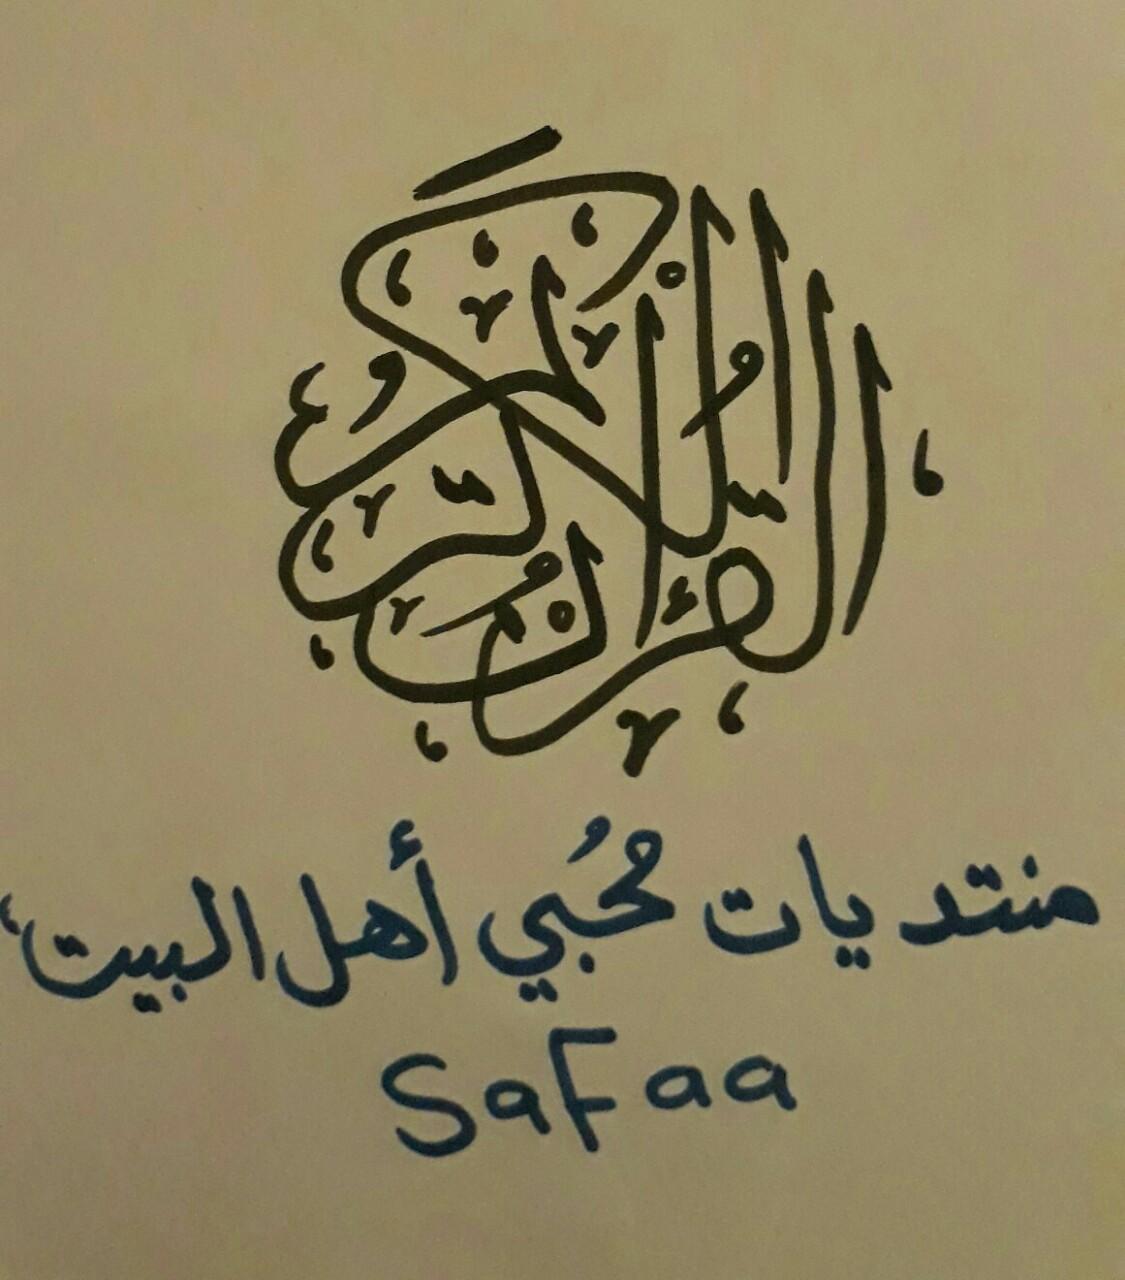 القرآن الكريم
منتديات محُبي أهل البيت
SaFaa